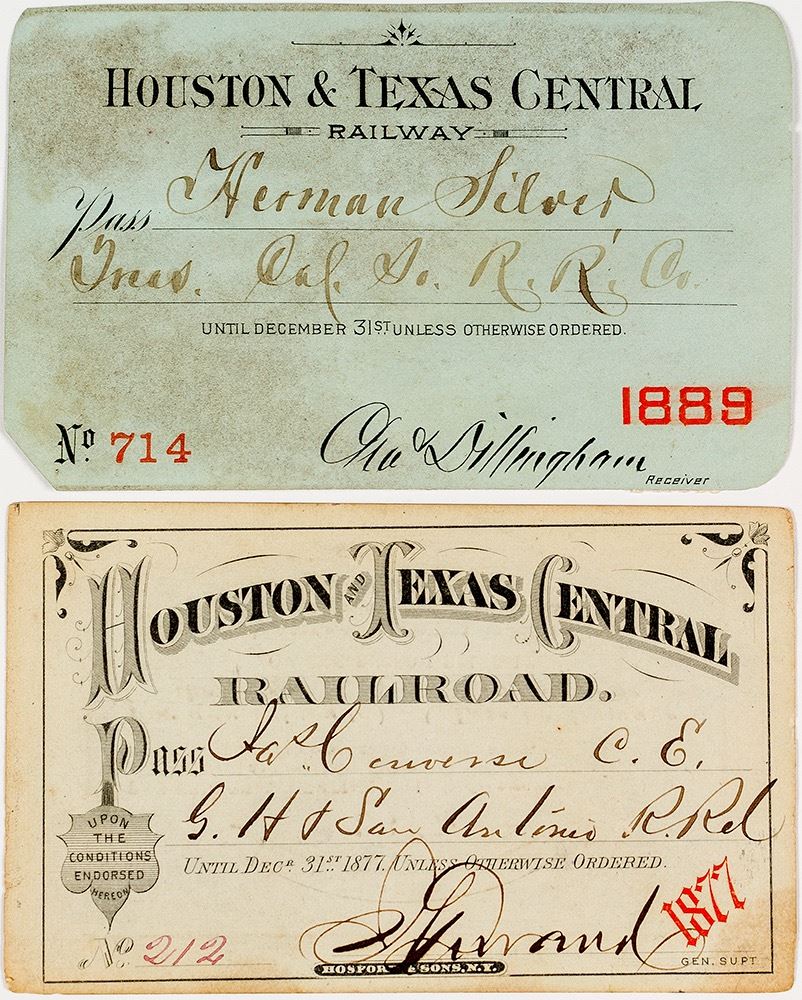 HOUSTON & TEXAS CENTRAL
RAILWAY
Pass Herman Silver,
Treas. Cal. So. R. R. Co.
UNTIL DECEMBER 31ST UNLESS OTHERWISE ORDERED.
1889
No. 714
Chas Dillingham
Receiver
HOUSTON AND TEXAS CENTRAL
RAILROAD.
Pass Jas. Converse C. E.
G. H & San Antonio R. Rd
UPON
THE
CONDITIONS
ENDORSED
HEREON
UNTIL DECR. 31ST 1877, UNLESS OTHERWISE ORDERED.
1877
No. 212
Durand
GEN. SUPT.
HOSFORD & SONS, N.Y.